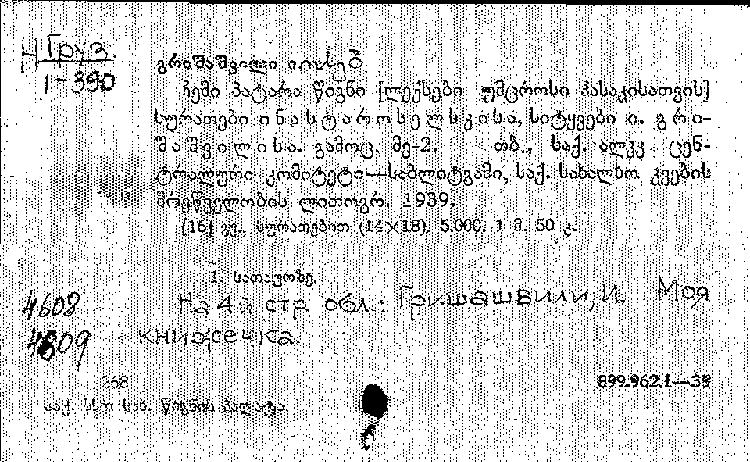 Н Груз.
1-390
გრიშაშვილი იოსებ
ჩემი პატარა წიგნი [ლექსები უმცროსი ჰასაკისათვის]
სურათები ი ნ ა ს ტ ა რ ო ს ე ლ ს კ ი ს ა, სიტყვები ი. გ რ ი-
შ ა შ ვ ი ლ ი ს ა. გამოც. მე-2. თბ., საქ. ალკკ ცენ-
ტრალური კომიტეტი—საბლიტგამი, საქ. სახალხო კვების
მრეწველობის ლითოგრ. 1939.
[16] გვ., სურათებით (14×18). 5.000. 1 მ. 50 კ.
1. სათაურზე.
4608 На 4й стр обл.: Гришашвили, И Моя
4609 книжечка
268 899.962.1—38
საქ. სსრ სახ. წიგნის პალატა